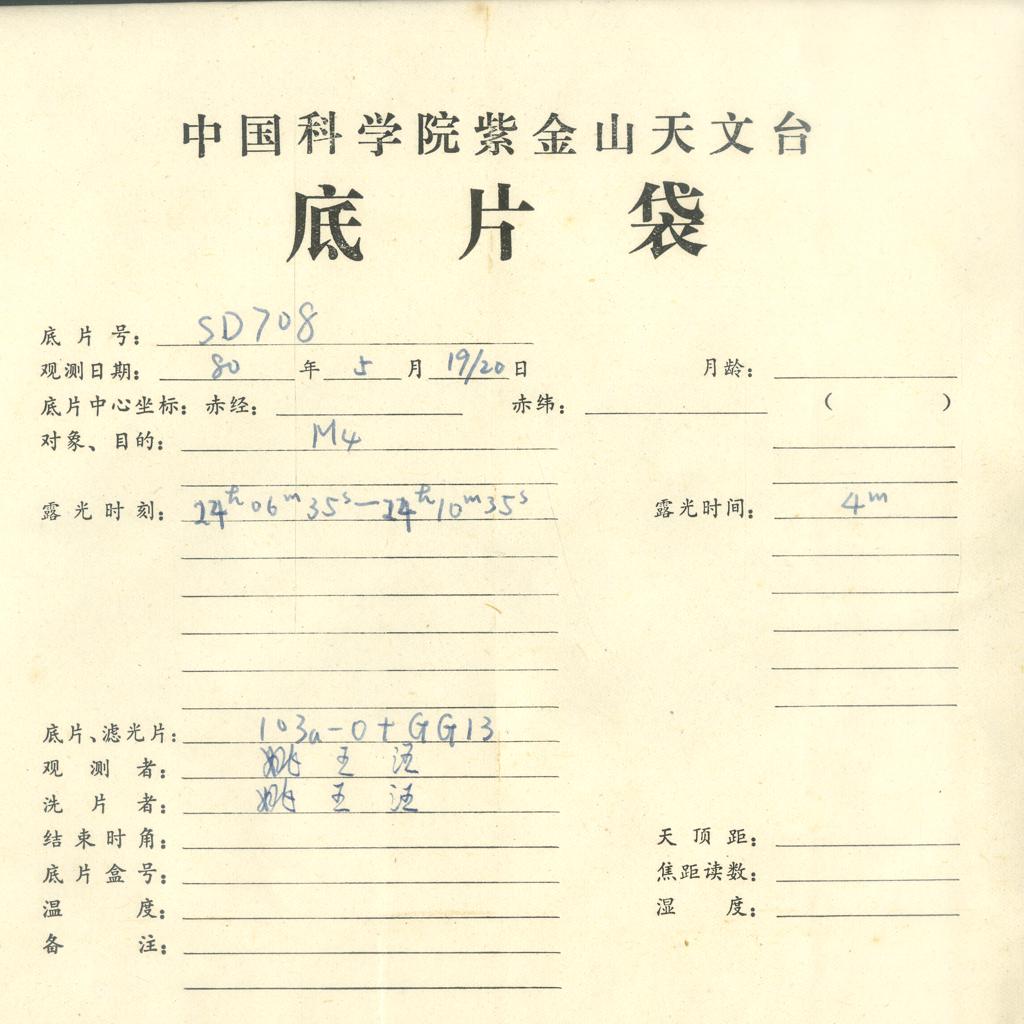 中国科学院紫金山天文台
底片袋
底片号： SD708
观测日期： 80 年 5 月 19/20 日 月龄：
底片中心坐标：赤经： 赤纬： （ ）
对象、目的： M4
露光时刻： 24h06m35s—24h10m35s 露光时间： 4m
底片、滤光片： 103a-O+GG13
观测者： 姚 王 汪
洗片者： 姚 王 汪
结束时角： 天顶距：
底片盒号： 焦距读数：
温度： 湿度：
备注：